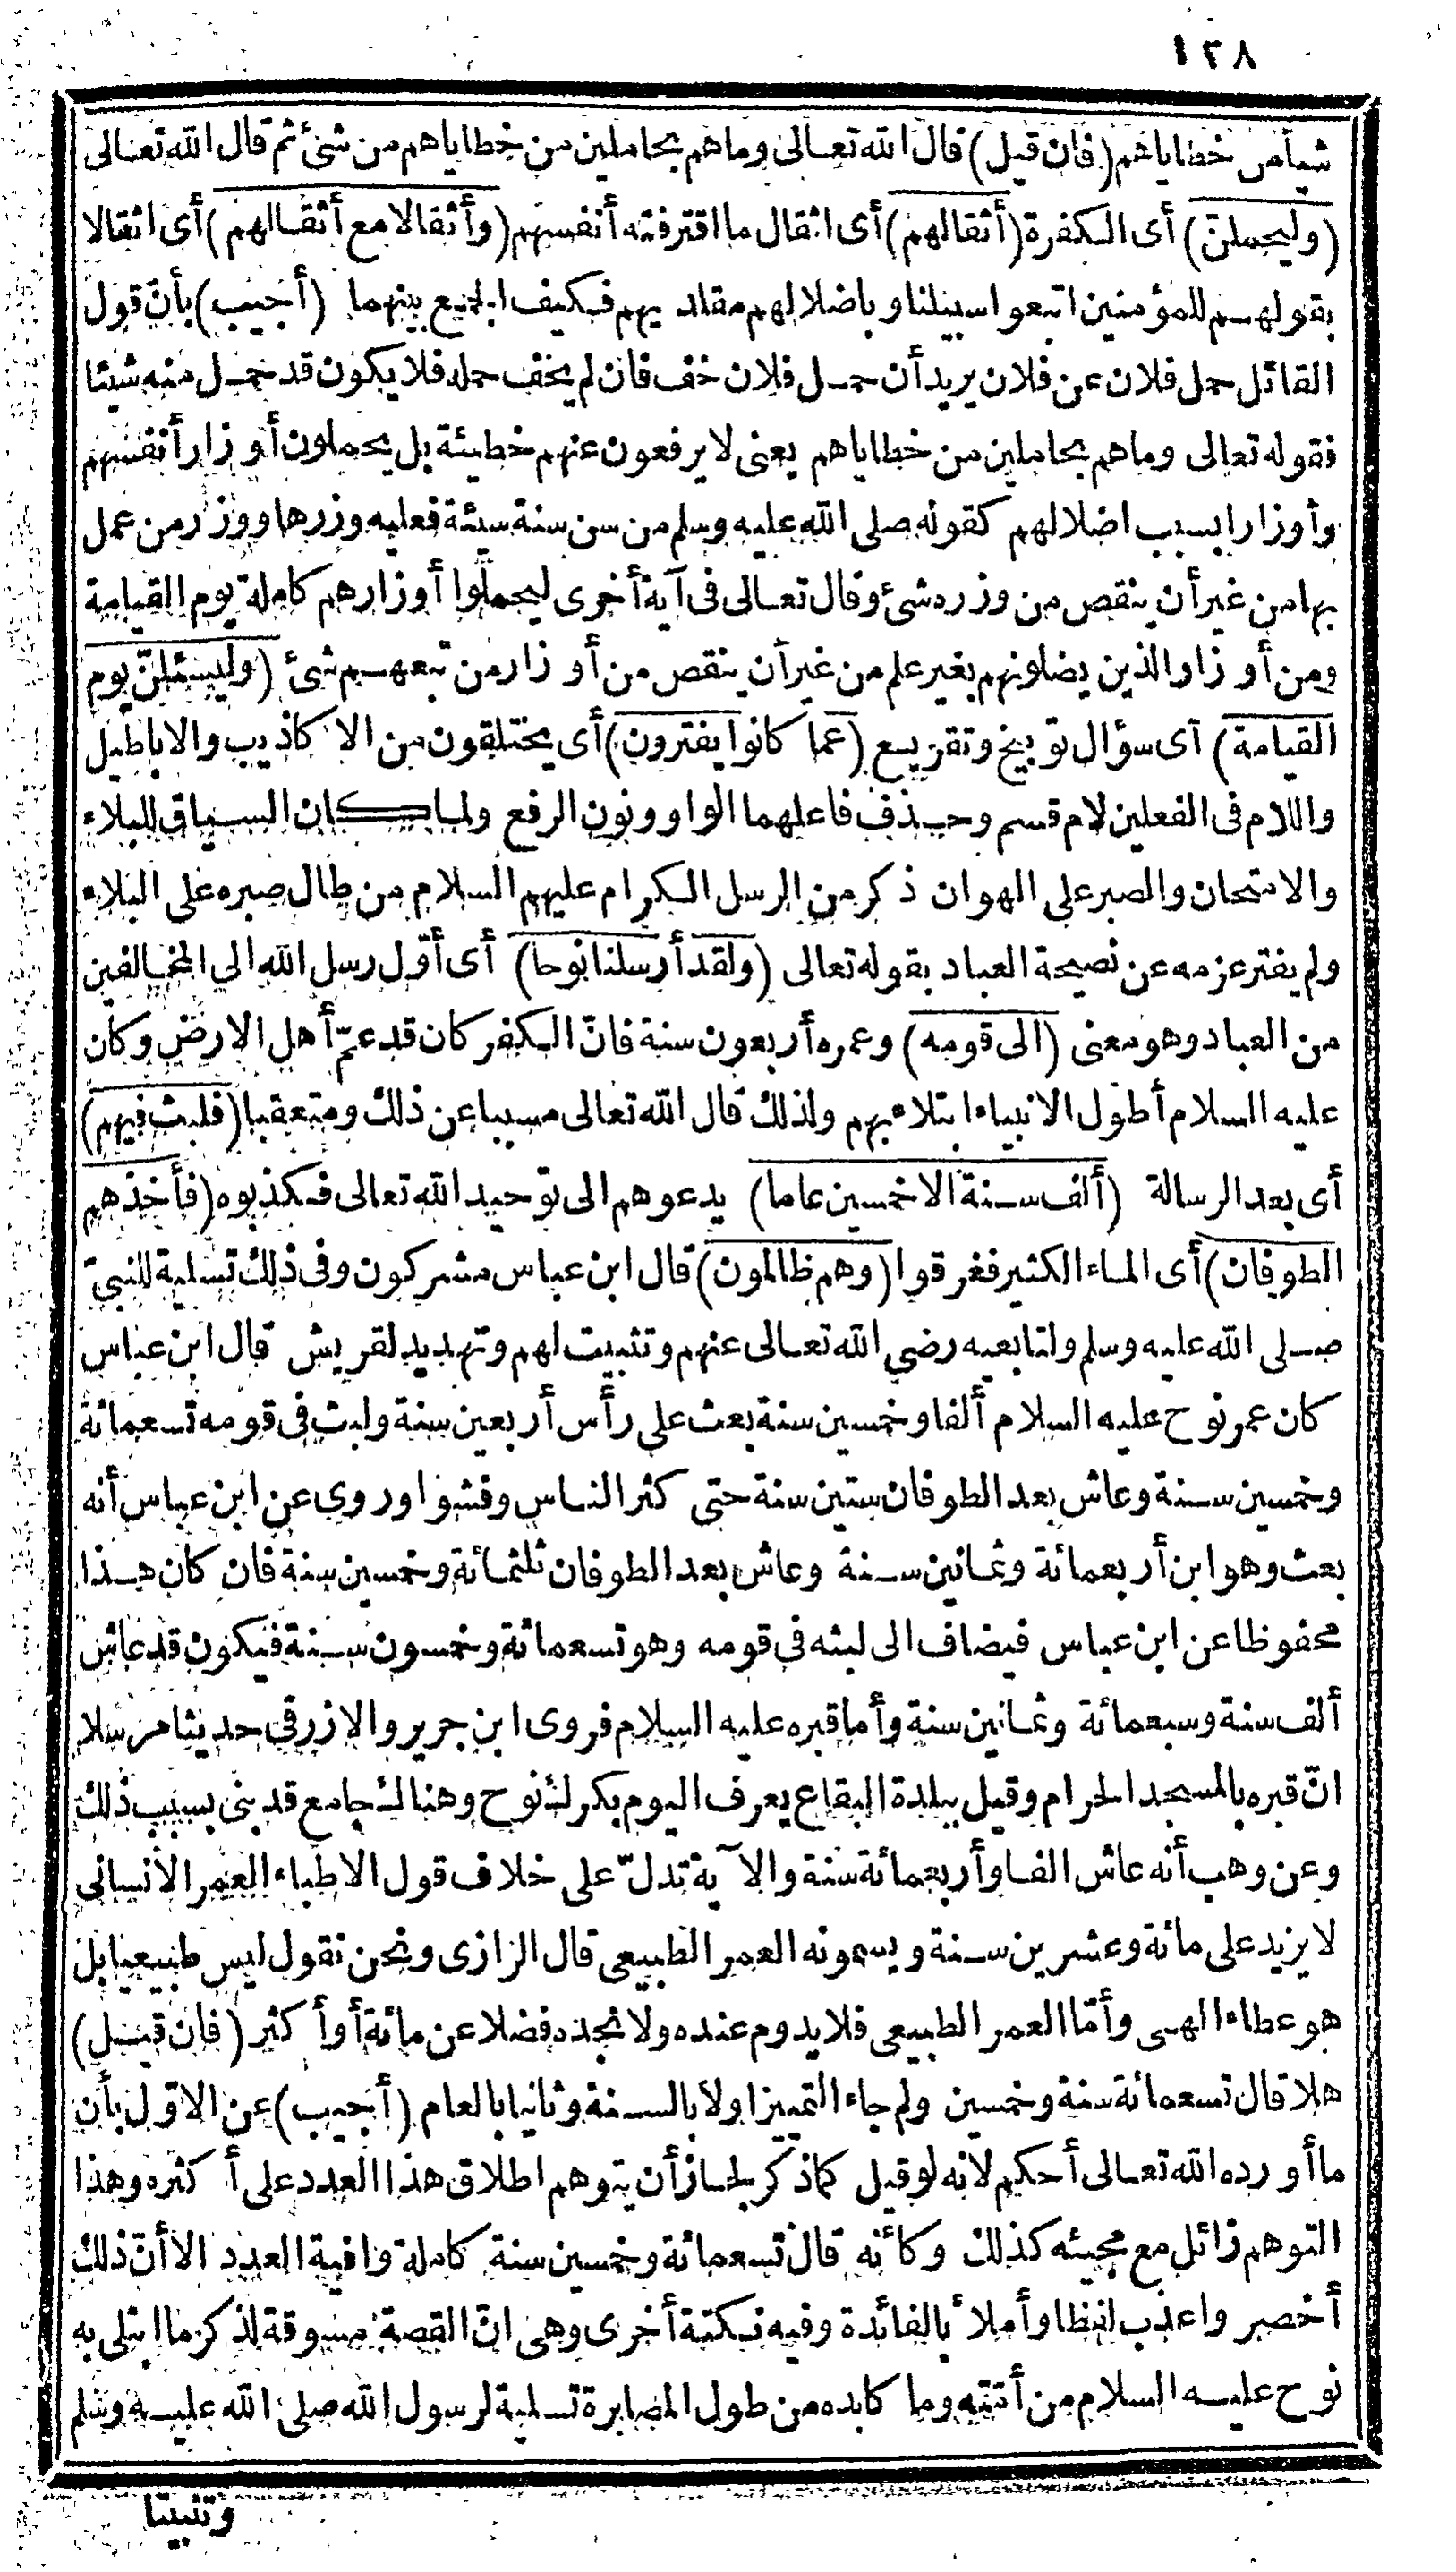 ١٢٨
شيأمن خطاياهم (فان قيل) قال الله تعالى وما هم بحاملين من خطاياهم من شئ ثم قال الله تعالى
(وليحملنّ) أى الكفرة (أثقالهم) أى اثقال ما اقترفته أنفسهم (وأثقالا مع أثقالهم) أى اثقالا
بقولهم للمؤمنين اتبعوا سبيلنا وباضلالهم مقلديهم فكيف الجمع بينهما (أجيب) بأن قول
القائل حمل فلان عن فلان يريد أن حمل فلان خف فان لم يخف حمله فلا يكون قد حمل منه شيئا
فقوله تعالى وما هم بحاملين من خطاياهم يعنى لا يرفعون عنهم خطيئة بل يحملون أوزار أنفسهم
وأوزارا بسبب اضلالهم كقوله صلى الله عليه وسلم من سن سنة سيئة فعليه وزرها ووزر من عمل
بها من غير أن ينقص من وزره شئ وقال تعالى فى آية أخرى ليحملوا أوزارهم كاملة يوم القيامة
ومن أوزار الذين يضلونهم بغير علم من غير أن ينقص من أوزار من تبعهم شئ (وليسئلنّ يوم
القيامة) أى سؤال توبيخ وتقريع (عما كانوا يفترون) أى يختلقون من الاكاذيب والاباطيل
واللام فى الفعلين لام قسم وحذف فاعلهما الواو ونون الرفع ولما كان السياق للبلاء
والامتحان والصبر على الهوان ذكر من الرسل الكرام عليهم السلام من طال صبره على البلاء
ولم يفتر عزمه عن نصيحة العباد بقوله تعالى (ولقد أرسلنا نوحا) أى أوّل رسل الله الى المخالفين
من العباد وهو معنى (الى قومه) وعمره أربعون سنة فانّ الكفر كان قد عمّ أهل الارض وكان
عليه السلام أطول الانبياء ابتلاء بهم ولذلك قال الله تعالى مسببا عن ذلك ومتعقبا (فلبث فيهم)
أى بعد الرسالة (ألف سنة الا خمسين عاما) يدعوهم الى توحيد الله تعالى فكذبوه (فأخذهم
الطوفان) أى الماء الكثير فغرقوا (وهم ظالمون) قال ابن عباس مشركون وفى ذلك تسلية للنبىّ
صلى الله عليه وسلم ولتابعيه رضى الله تعالى عنهم وتثبيت لهم وتهديد لقريش قال ابن عباس
كان عمر نوح عليه السلام ألفا وخمسين سنة بعث على رأس أربعين سنة ولبث فى قومه تسعمائة
وخمسين سنة وعاش بعد الطوفان ستين سنة حتى كثر الناس وفشوا وروى عن ابن عباس أنه
بعث وهو ابن أربعمائة وثمانين سنة وعاش بعد الطوفان ثلثمائة وخمسين سنة فان كان هذا
محفوظا عن ابن عباس فيضاف الى لبثه فى قومه وهو تسعمائة وخمسون سنة فيكون قد عاش
ألف سنة وسبعمائة وثمانين سنة وأما قبره عليه السلام فروى ابن جرير والازرقى حديثا مرسلا
انّ قبره بالمسجد الحرام وقيل ببلدة البقاع يعرف اليوم بكرك نوح وهناك جامع قد بنى بسبب ذلك
وعن وهب أنه عاش الفا وأربعمائة سنة والآية تدلّ على خلاف قول الاطباء العمر الانسانى
لا يزيد على مائة وعشرين سنة ويسمونه العمر الطبيعى قال الرازى ونحن نقول ليس طبيعيا بل
هو عطاء الهى وأمّا العمر الطبيعى فلا يدوم عنده ولا نجده فضلا عن مائة أو أكثر (فان قيل)
هلا قال تسعمائة سنة وخمسين ولم جاء التمييز اولا بالسنة وثانيا بالعام (أجيب) عن الاوّل بأن
ما أورده الله تعالى أحكم لانه لو قيل كما ذكر لجاز أن يتوهم اطلاق هذا العدد على أكثره وهذا
التوهم زائل مع مجيئه كذلك وكأنه قال تسعمائة وخمسين سنة كاملة وافية العدد الا أنّ ذلك
أخصر واعذب لفظا وأملأ بالفائدة وفيه نكتة أخرى وهى انّ القصة مسوقة لذكر ما ابتلى به
نوح عليه السلام من أمّته وما كابده من طول المصابرة تسلية لرسول الله صلى الله عليه وسلم
وتثبيتا